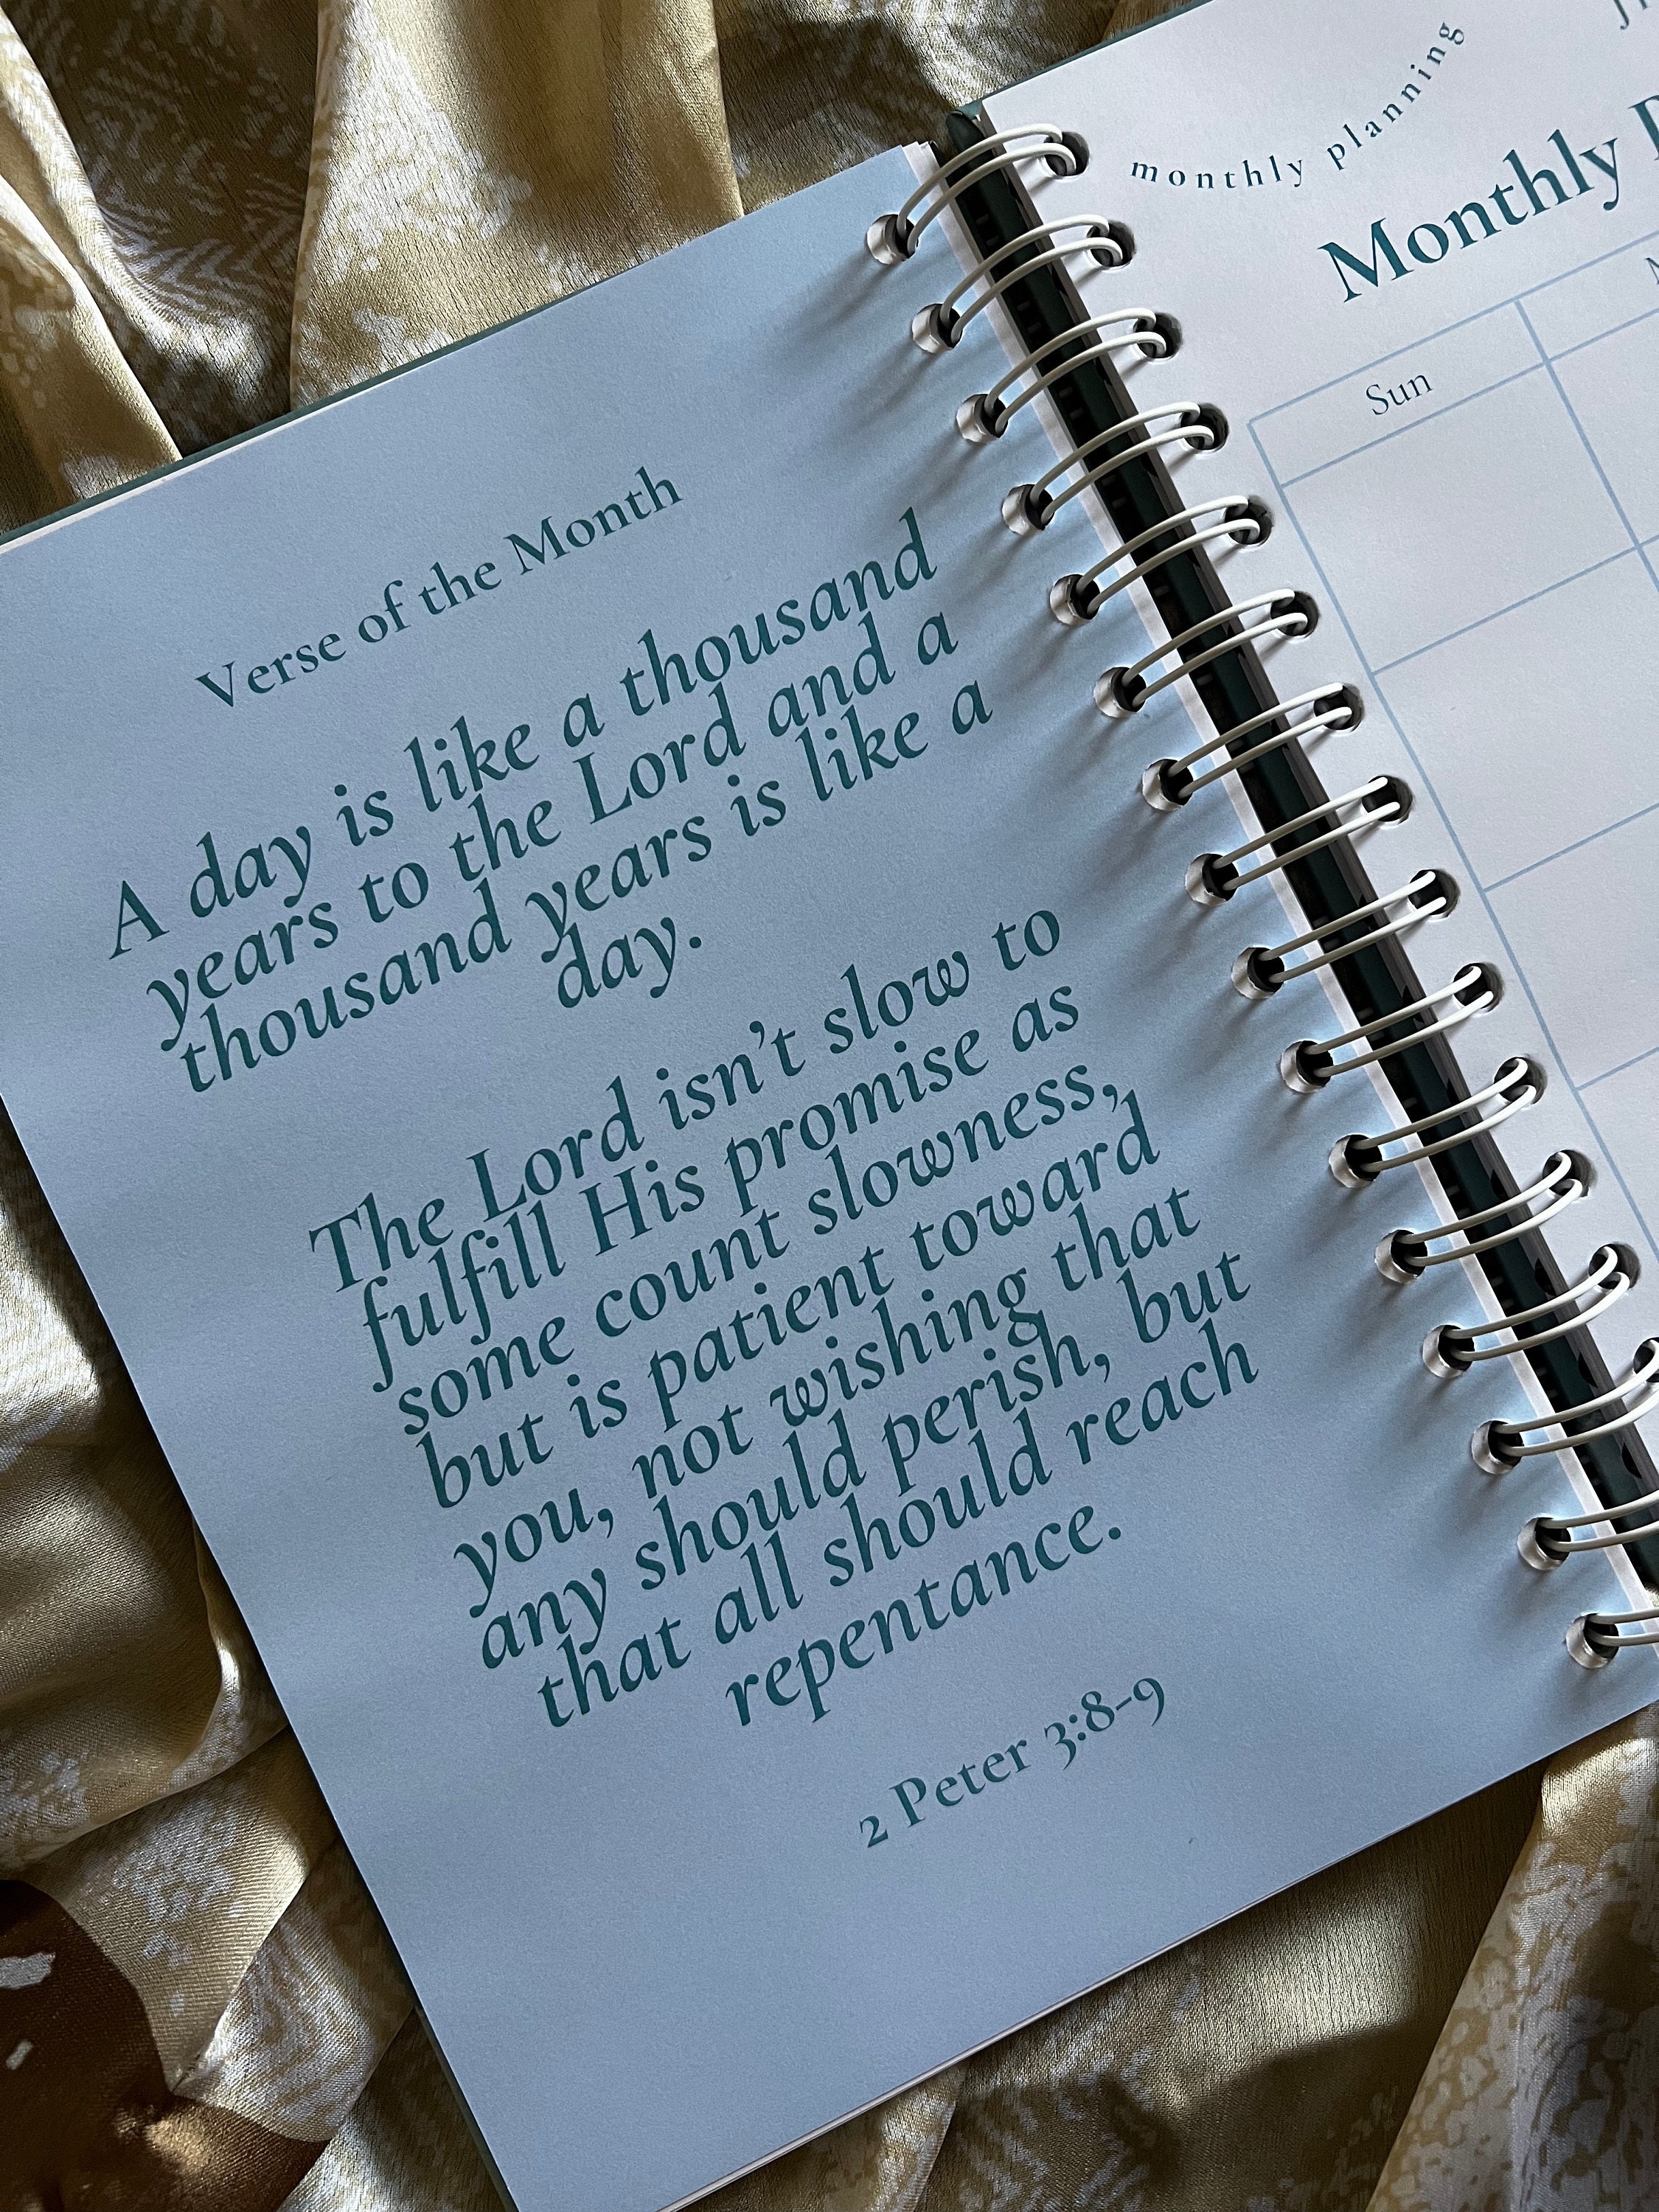 Verse of the Month
A day is like a thousand
years to the Lord and a
thousand years is like a
day.
The Lord isn't slow to
fulfill His promise as
some count slowness,
but is patient toward
you, not wishing that
any should perish, but
that all should reach
repentance.
2 Peter 3:8-9
monthly planning
Monthly
Sun